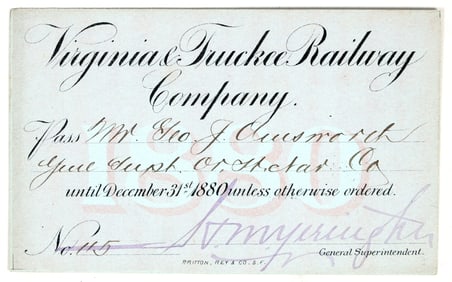 Virginia & Truckee Railway
Company.
Pass Mr. Geo. J. Ainsworth
Genl Supt. Or. St. Nav. Co
until December 31st 1880 unless otherwise ordered.
1880
No. 115 H M Yerington
General Superintendent.
BRITTON, REY & CO. S.F.